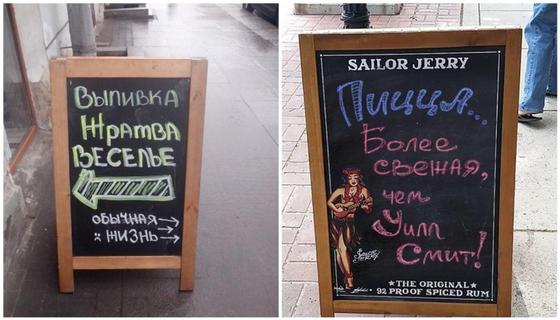 Выпивка
Жратва
Веселье
обычная
:( жизнь
SAILOR JERRY
Пицца...
Более
свежая,
чем
Уилл
Смит!
Sailor
Jerry
★THE ORIGINAL★
92 PROOF SPICED RUM